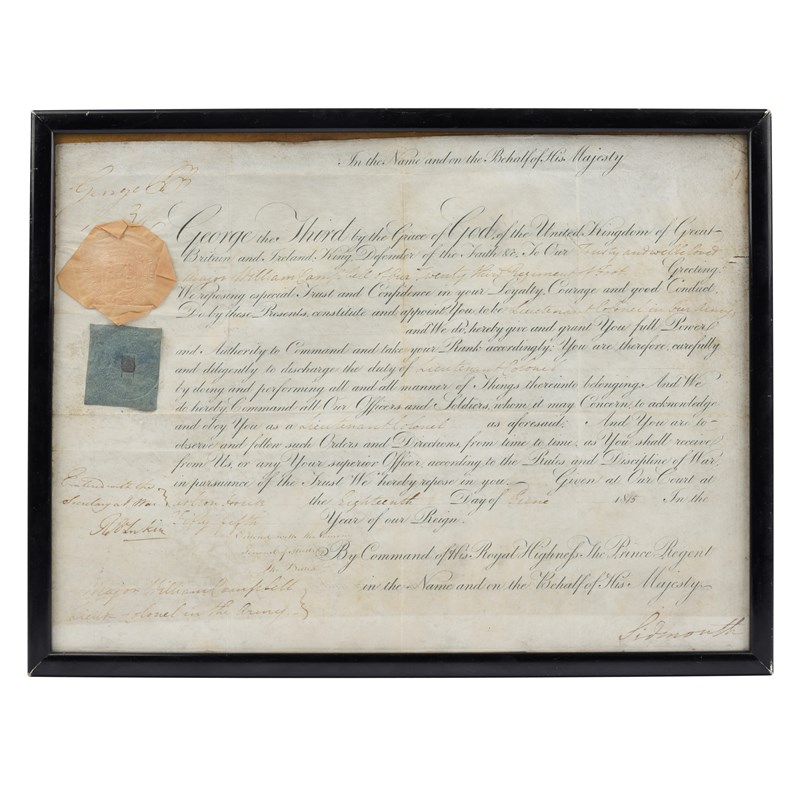 In the Name and on the Behalf of His Majesty
George P R
George the Third by the Grace of God, of the United Kingdom of Great
Britain and Ireland, King, Defender of the Faith &c. To Our Trusty and well beloved
Major William Campbell of the Twenty third Regiment of Foot Greeting.
We reposing especial Trust and Confidence in your Loyalty, Courage and good Conduct
Do by these Presents, constitute and appoint You to be Lieutenant Colonel in our Army
and We do hereby give and grant You full Power
and Authority to Command and take your Rank accordingly. You are therefore carefully
and diligently to discharge the duty of Lieutenant Colonel
by doing and performing all and all manner of Things thereunto belonging, And We
do hereby Command all Our Officers and Soldiers, whom it may Concern, to acknowledge
and obey You as a Lieutenant Colonel as aforesaid; And You are to
observe and follow such Orders and Directions, from time to time, as You shall receive
from Us, or any Your superior Officer, according to the Rules and Discipline of War
in pursuance of the Trust We hereby repose in you. Given at Our Court at
Carlton House the Eighteenth Day of June 1815 In the
Fifty fifth Year of our Reign.
Entered with the
Secretary at War
By Command of His Royal Highness The Prince Regent
in the Name and on the Behalf of His Majesty
Major William Campbell
Lieut. Colonel in the Army
Sidmouth